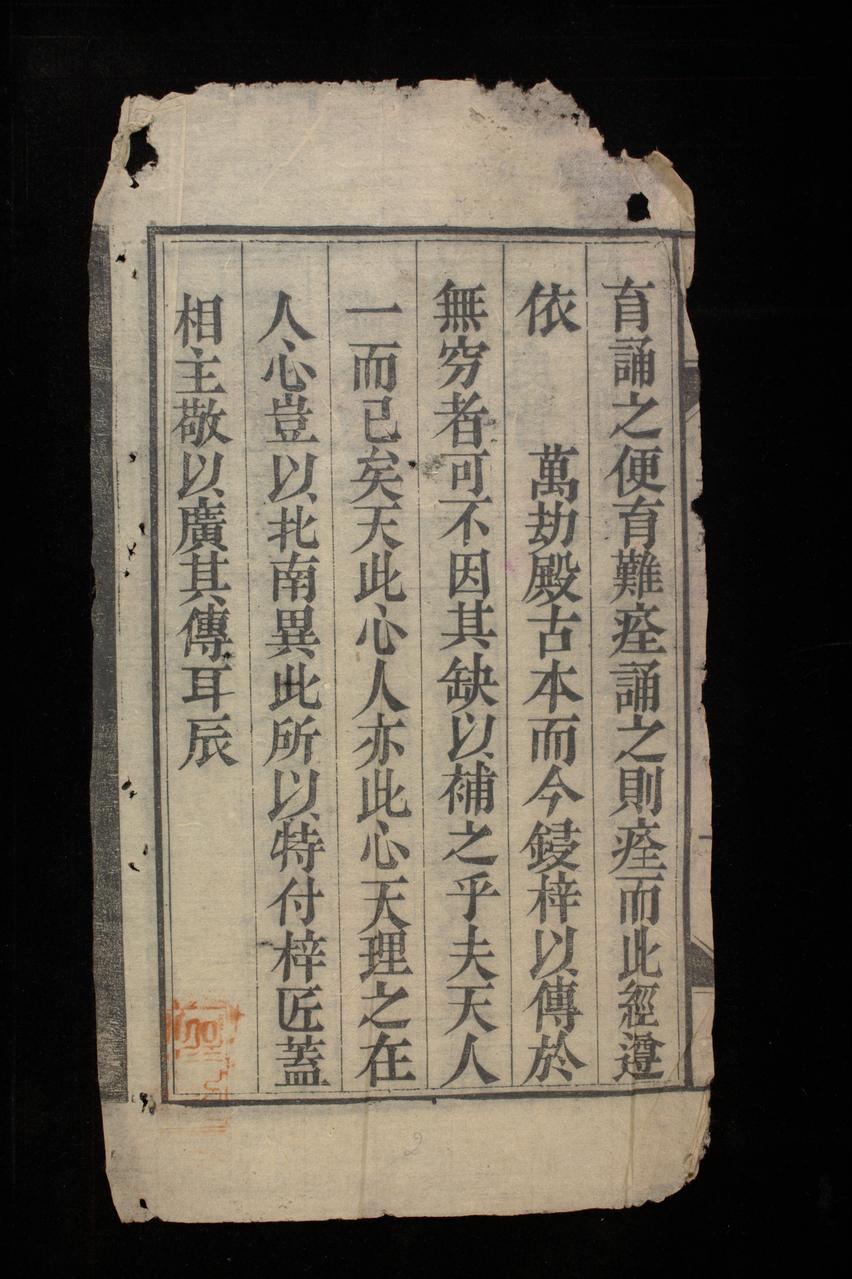 育誦之便育難痊誦之則痊而此經遵
依　萬劫殿古本而今鋟梓以傳於
無穷者可不因其缺以補之乎夫天人
一而已矣天此心人亦此心天理之在
人心豈以北南異此所以特付梓匠蓋
相主敬以廣其傳耳辰
2